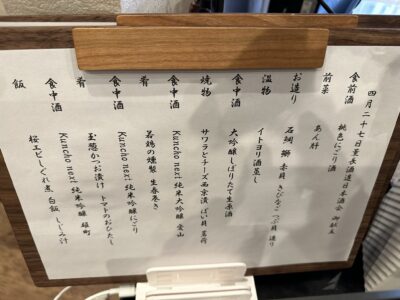 四月二十七日 長酒造日本酒会 御献立
食前酒 桃色にごり酒
前菜 あん肝
お造り 石鯛 鰤 赤貝 きびなご つぶ貝 造り
温物 イトヨリ酒蒸し
食中酒 大吟醸しぼりたて生原酒
焼物 サワラとチーズ西京漬 ばい貝 茗荷
食中酒 Kuncho next 純米大吟醸 愛山
肴 若鶏の燻製 生春巻き
食中酒 Kuncho next 純米吟醸にごり
肴 玉葱かつお漬け トマトのおひたし
食中酒 Kuncho next 純米吟醸 雄町
飯 桜エビしぐれ煮 白飯 しじみ汁